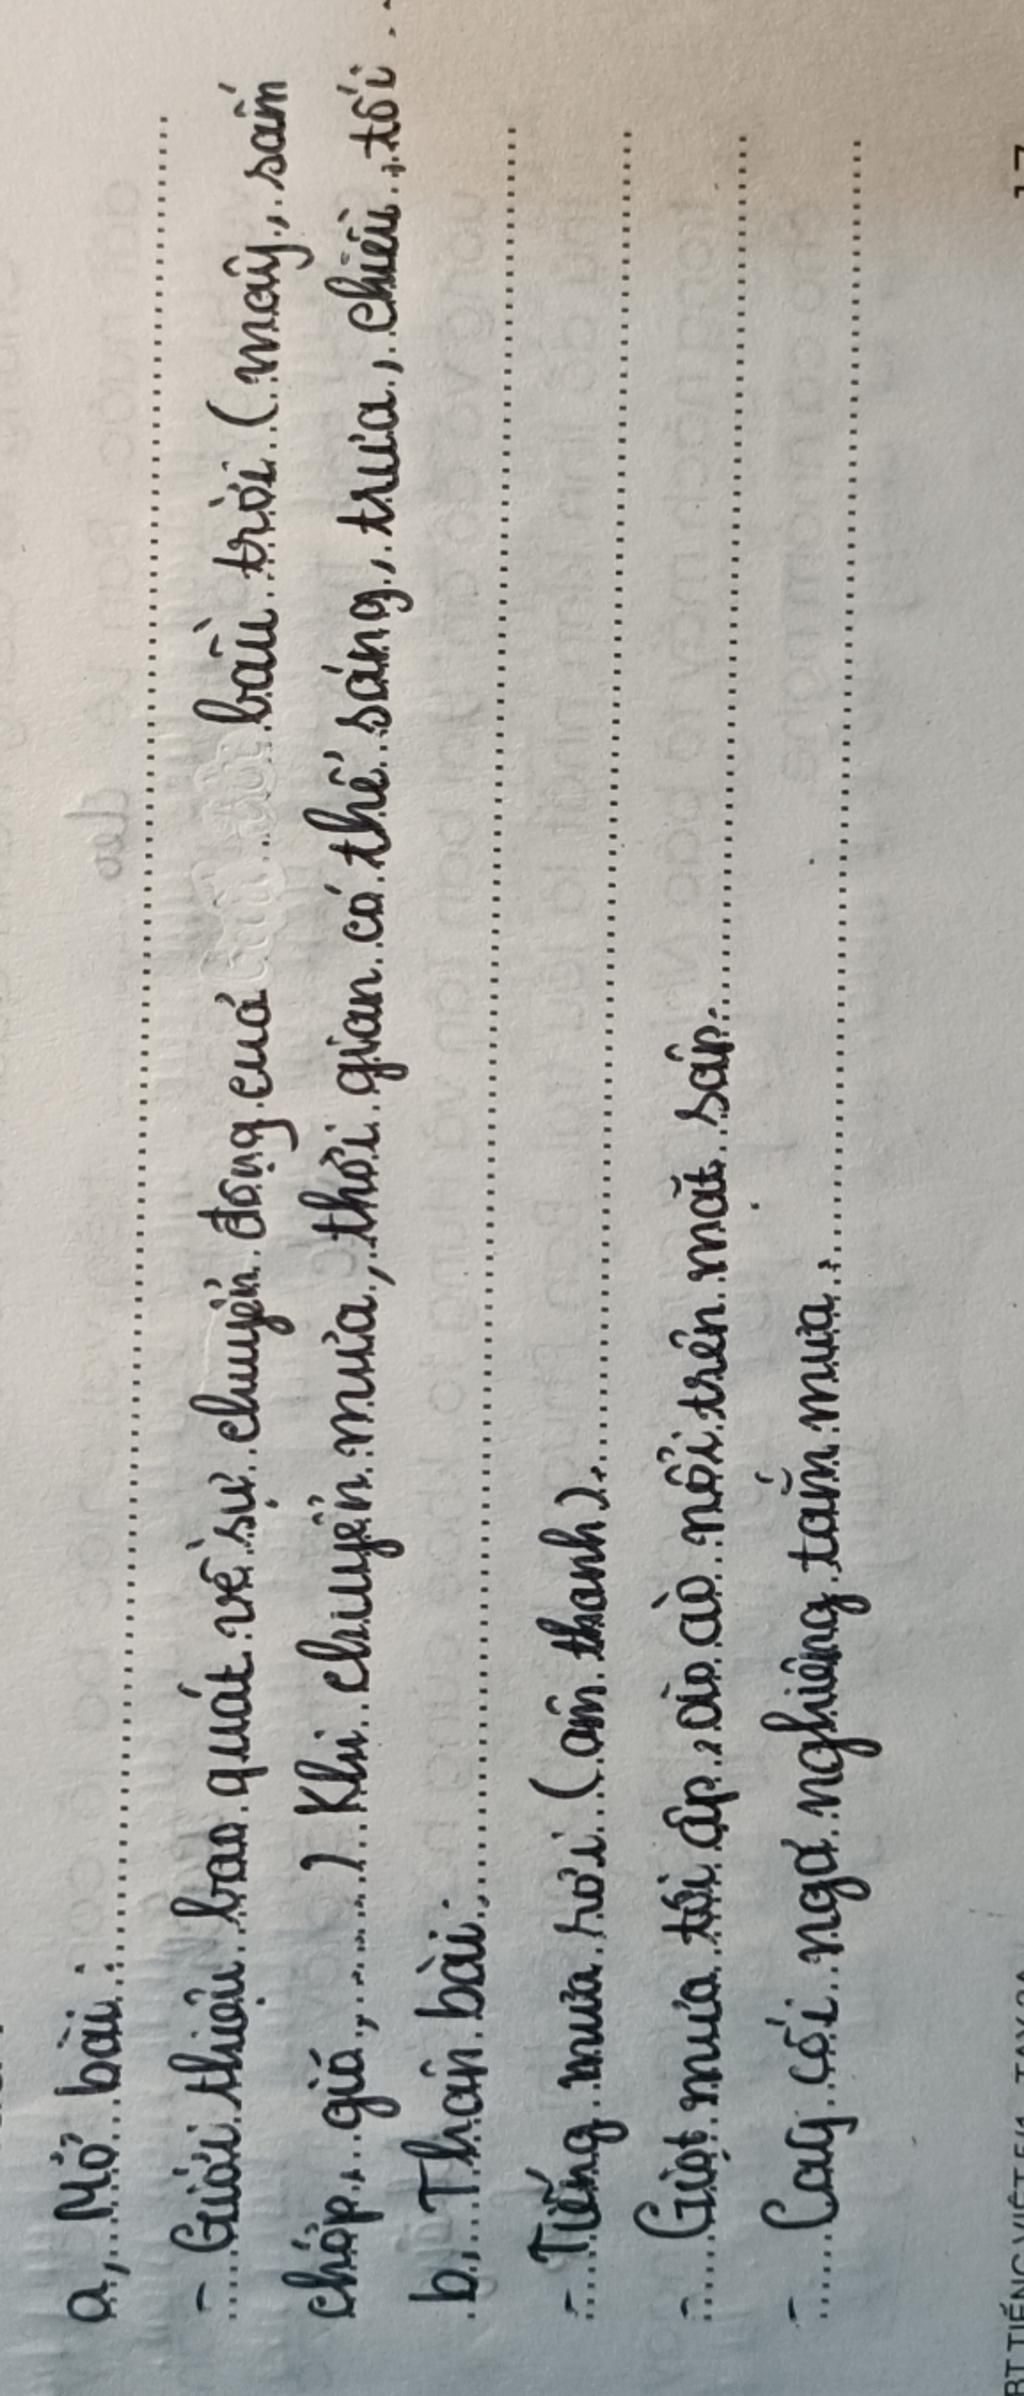 a, Mở bài:
- Giới thiệu bao quát về sự chuyển động của bầu trời (mây, sấm
chớp, gió, ......) Khi chuyển mưa, thời gian có thể sáng, trưa, chiều, tối...
b, Thân bài:
- Tiếng mưa rơi (âm thanh).
- Giọt mưa tới ấp, ào ào nổi trên mặt sấp.
- Cây cối ngả nghiêng tắm mưa.
17